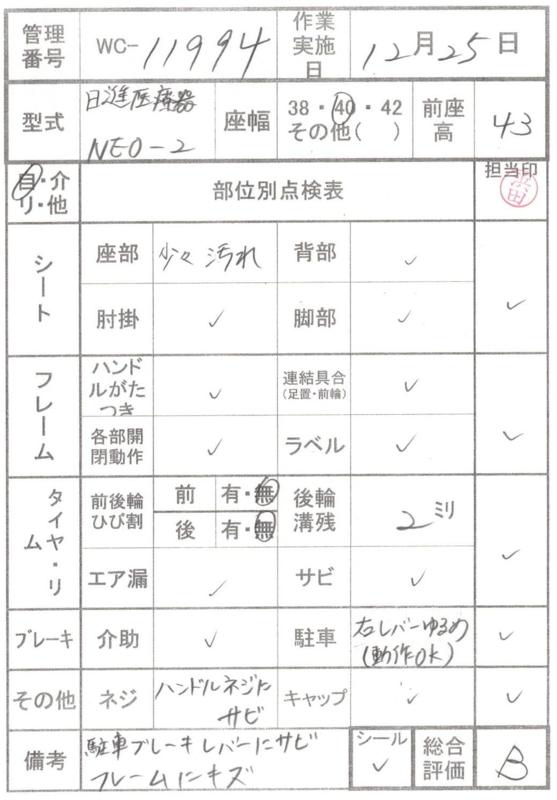 管理番号 WC-11994 作業実施日 12月25日
型式 日進医療器 NEO-2 座幅 38・40・42 その他( ) 前座高 43
自・介・リ・他 部位別点検表 担当印
シート 座部 少々汚れ 背部 ✓ ✓
肘掛 ✓ 脚部 ✓
フレーム ハンドルがたつき ✓ 連結具合(足置・前輪) ✓ ✓
各部開閉動作 ✓ ラベル ✓
タイヤ・リム 前後輪ひび割 前 有・無 後輪溝残 2ミリ ✓
後 有・無
エア漏 ✓ サビ ✓
ブレーキ 介助 ✓ 駐車 右レバーゆるめ(動作OK) ✓
その他 ネジ ハンドルネジにサビ キャップ ✓ ✓
備考 駐車ブレーキレバーにサビ シール ✓ 総合評価 B
フレームにキズ